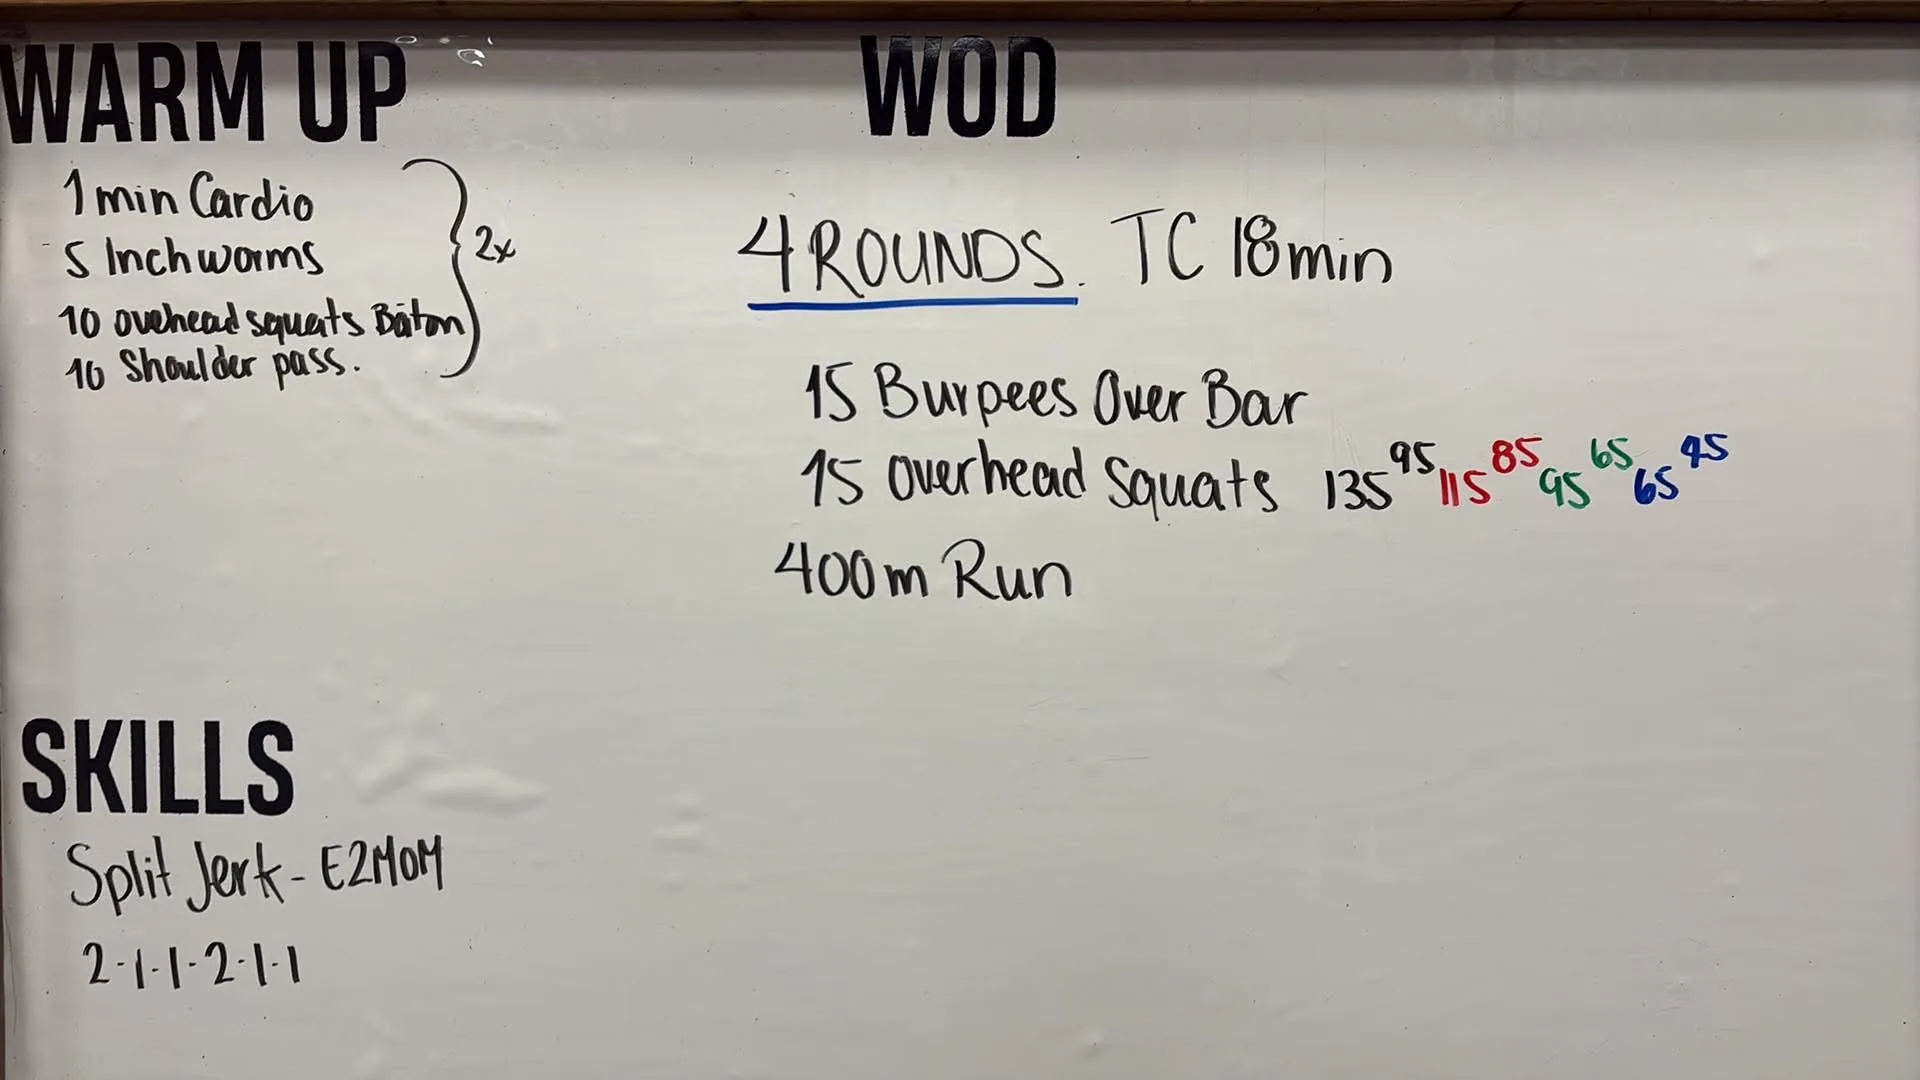 WARM UP
1 min Cardio
5 Inchworms
10 ovehead squats Bâton
10 Shoulder pass.
2x
WOD
4 ROUNDS. TC 18 min
15 Burpees Over Bar
15 Overhead Squats 135 95 115 85 95 65 65 45
400m Run
SKILLS
Split Jerk - E2MOM
2-1-1-2-1-1